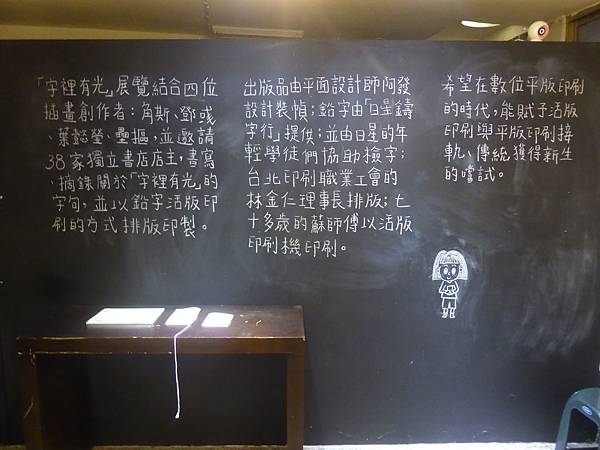 「字裡有光」展覽結合四位
插畫創作者：角斯、鄧彧
、葉懿瑩、疊摳，並邀請
38家獨立書店店主，書寫
、摘錄關於「字裡有光」的
字句，並以鉛字活版印
刷的方式排版印製。
出版品由平面設計師阿發
設計裝幀；鉛字由「日星鑄
字行」提供；並由日星的年
輕學徒們協助撿字；
台北印刷職業工會的
林金仁理事長排版；七
十多歲的蘇師傅以活版
印刷機印刷。
希望在數位平版印刷
的時代，能賦予活版
印刷與平版印刷接
軌、傳統獲得新生
的嚐試。